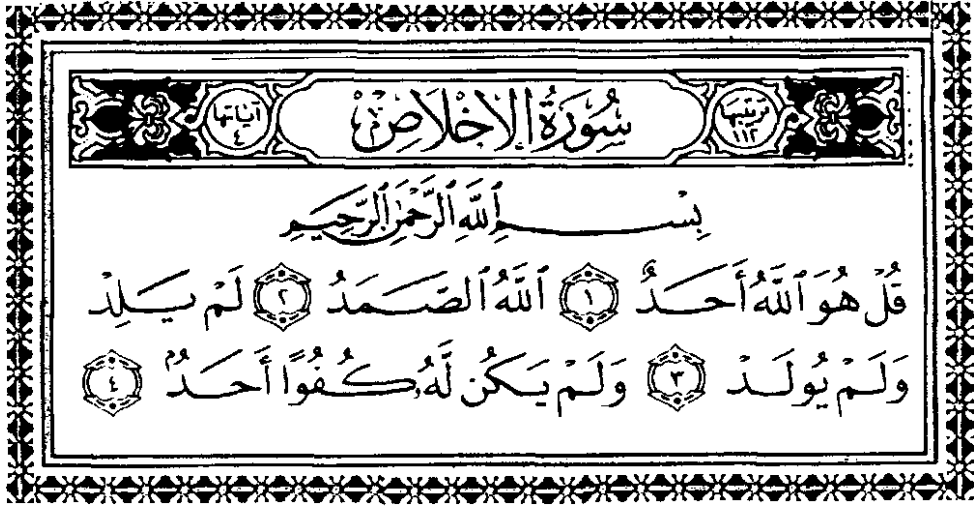 ترتيبها ١١٢ سُورَةُ الإِخْلَاصِ آياتها ٤
بِسْمِ ٱللَّهِ ٱلرَّحْمَٰنِ ٱلرَّحِيمِ
قُلْ هُوَ ٱللَّهُ أَحَدٌ ١ ٱللَّهُ ٱلصَّمَدُ ٢ لَمْ يَلِدْ
وَلَمْ يُولَدْ ٣ وَلَمْ يَكُن لَّهُۥ كُفُوًا أَحَدُۢ ٤